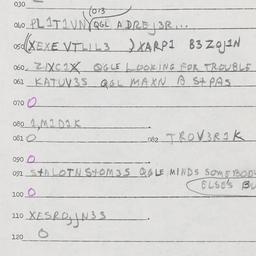 030
013
040 PL1T1VN QGL ADREJ3R...
050 (XEXEVTLIL3 )XARP1 83Z0J1N
060 ZIXC1X QGLE LOOKING FOR TROUBLE
061 KATUV3S QGL MAXN B S+PAS
070 O
080 1,M1D1K
081 O 082 TROV3R1K
090 O
091 S+ALOTNS+OM3S QGLE MINDS SOMEBODY
ELSE'S BU
100 O
110 XESROJJN3S
120 O